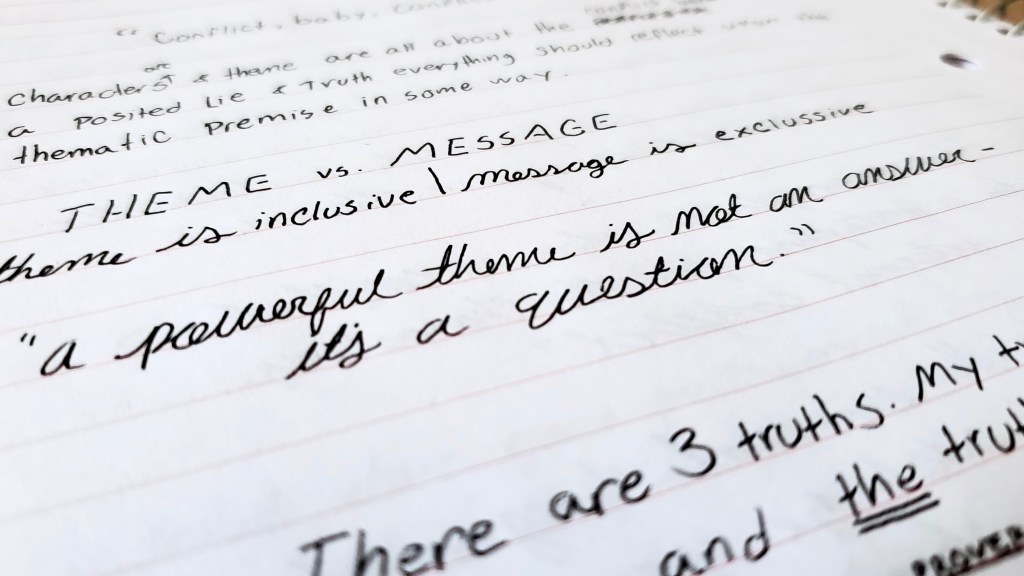 "Conflict, baby, conflict
Characters arc & theme are all about the
a posited Lie & Truth everything should reflect upon the
thematic premise in some way.
THEME vs. MESSAGE
theme is inclusive \ message is exclussive
"a powerful theme is not an answer -
it's a question."
There are 3 truths. My
and the
PROVER